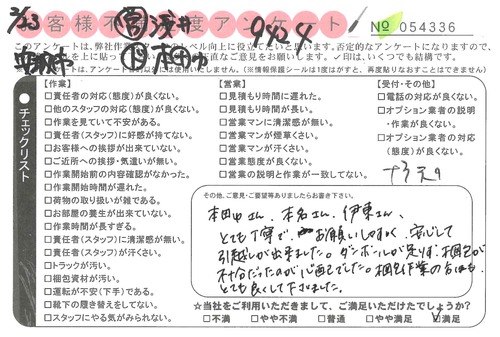 2/23
お客様不満足度アンケート
営 深井
9424
No 054336
このアンケートは、弊社作業スタッフのレベル向上に役立てたいと思います。否定的なアンケートになりますので、
直なご意見をお願いします。✓印は、いくつでも結構です。
【作業】
□責任者の対応(態度)が良くない。
□他のスタッフの対応(態度)が良くない。
□作業を見ていて不安がある。
□責任者(スタッフ)に好感が持てない。
□お客様への挨拶が出来ていない。
□ご近所への挨拶・気遣いが無い。
□作業開始前の内容確認がなかった。
□作業開始時間が遅れた。
□荷物の取り扱いが雑である。
□お部屋の養生が出来ていない。
□作業時間が長すぎる。
□責任者(スタッフ)に清潔感が無い。
□責任者(スタッフ)が汗くさい。
□トラックが汚い。
□梱包資材が汚い。
□運転が不安(下手)である。
□靴下の履き替えをしてない。
□スタッフにやる気がみられない。
【営業】
□見積もり時間に遅れた。
□見積もり時間が長い。
□営業マンに清潔感が無い。
□営業マンが煙草くさい。
□営業マンが汗くさい。
□営業態度が良くない。
□営業の説明と作業が一致してない。
【受付・その他】
□電話の対応が良くない。
□オプション業者の説明
・作業が良くない。
□オプション業者の対応
(態度)が良くない。
チェックリスト
その他、ご意見・ご要望等ありましたらお書き下さい。
本田中さん、本名さん、伊東さん、
とても丁寧で、お願いしやすく、安心して
引越しが出来ました。ダンボールが足りず、梱包が
不十分だったのが心配でした。梱包作業の方はも
とても良くして下さいました。
☆当社をご利用いただきまして、ご満足いただけたでしょうか?
□不満 □やや不満 □普通 □やや満足 ☑満足